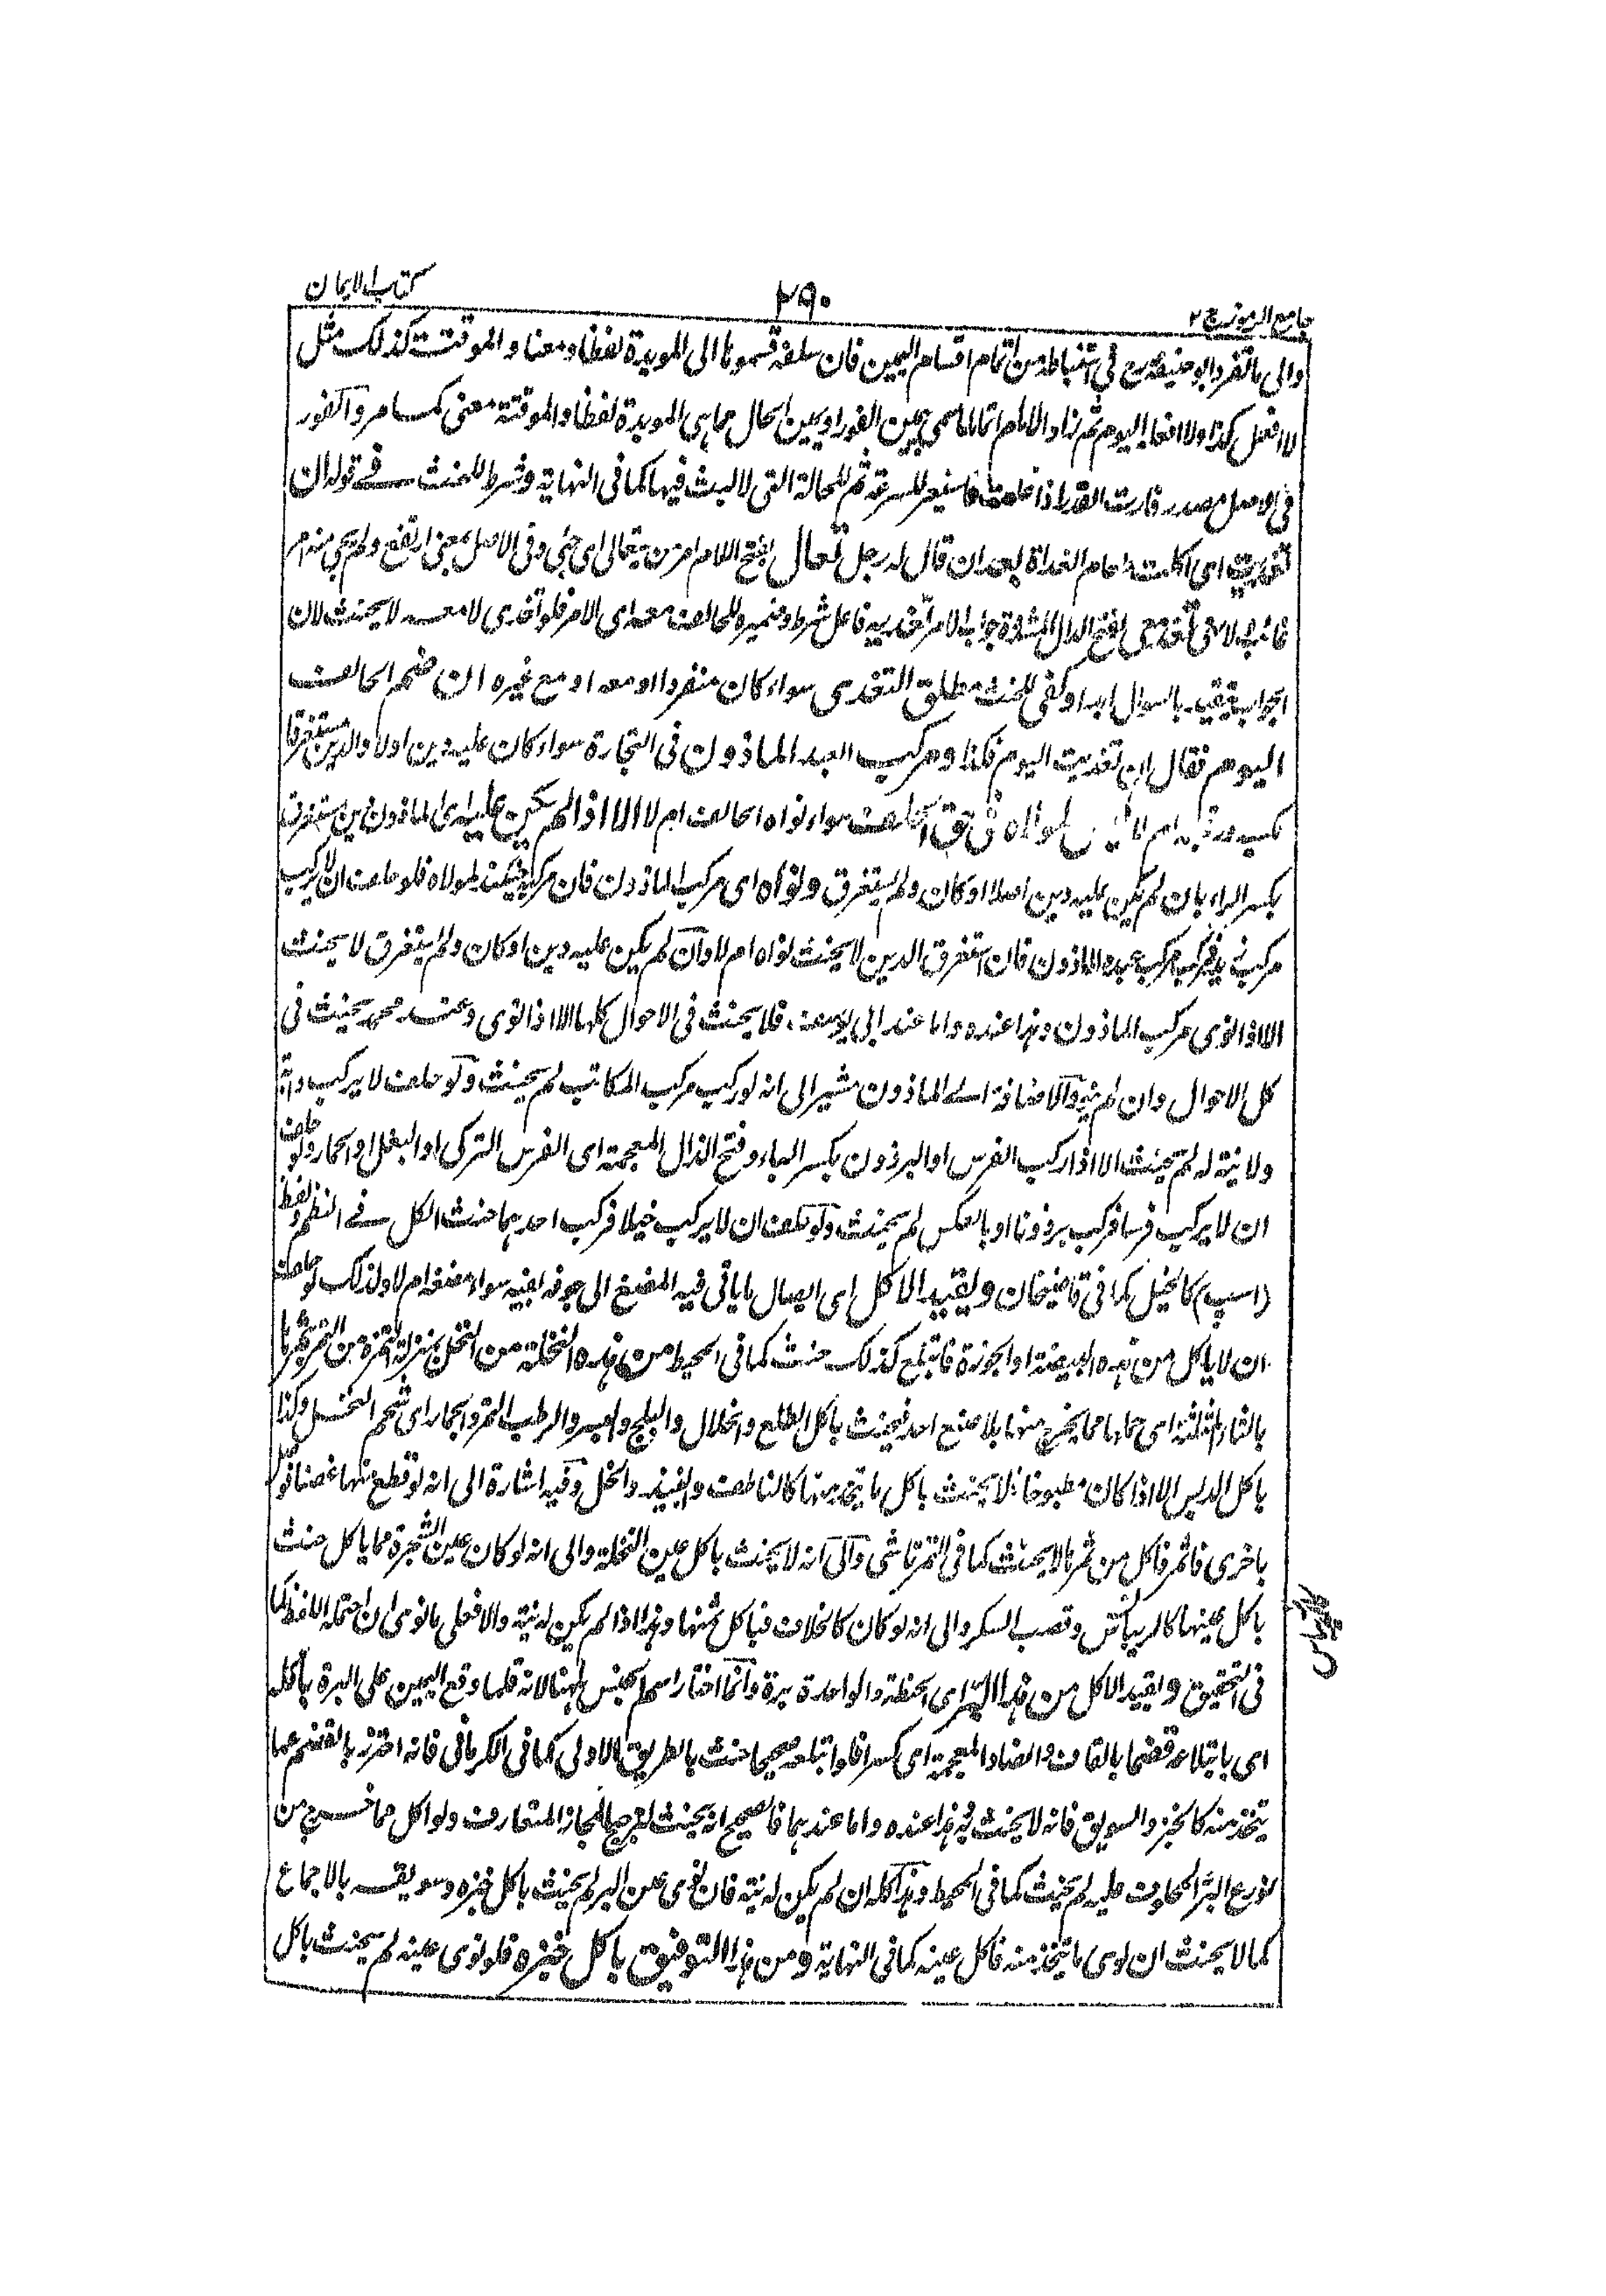 جامع الرموز ج ٢
٢٩٠
كتاب الايمان
والى ما تفرد ابو حنيفة رح فى استنباطه من اتمام اقسام اليمين فان سلفه قسموها الى المؤبدة لفظا ومعنا والموقتة كذلك مثل
لا افعل كذا ولا افعل اليوم ثم زاد الامام اتماما ما سمى يمين الفور او يمين الحال مما هى المؤبدة لفظا والموقتة معنى كما مر والفور
فى الاصل مصدر فارت القدر اذا غلت فاستعير للسرعة ثم للحالة التى لا لبث فيها كما فى النهاية وشرط للحنث فے قوله ان
تغديت اى اكلت طعام الغداة بعد ان قال له رجل تعال بفتح اللام امر من يتعالى اى جئى وفى الاصل بمعنى ارتفع ولم يجئ منه امر
غائب ولا نهى تغد معى بفتح الدال المشددة جواب الامر تغديه فاعل شرط وضميره للحالف معه اى الامر فلو تغدى لا معه لا يحنث لان
الجواب يتقيد بالسوال ابدا وكفى للحنث مطلق التغدى سواء كان منفردا او معه او مع غيره ان ضم الحالف
اليوم فقال ان تغديت اليوم فكذا ومركب العبد الماذون فى التجارة سواء كان عليه دين اولا والدين مستغرقا
لكسبه ورقبته ام لا ليس لمولاه فى حق الحلف سواء نواه الحالف ام لا الا اذا لم يكن عليه اى الماذون دين مستغرق
بكسر الراء بان لم يكن عليه دين اصلا او كان ولم يستغرق ونواه اى مركب الماذون فان مركبه حينئذ لمولاه فلو حلف ان لا يركب
مركب زيد فركب مركب عبده الماذون فان استغرق الدين لا يحنث نواه ام لا وان لم يكن عليه دين او كان ولم يستغرق لا يحنث
الا اذا نوى مركب الماذون وهذا عنده واما عند ابى يوسف فلا يحنث فى الاحوال كلها الا اذا نوى وعند محمد يحنث فى
كل الاحوال وان لم ينو والاضافة الے الماذون مشير الى انه لو ركب مركب المكاتب لم يحنث ولو حلف لا يركب دابة
ولا نية له لم يحنث الا اذا ركب الفرس او البرذون بكسر الباء وفتح الذال المعجمة اى الفرس التركى او البغل او الحمار ولو حلف
ان لا يركب فرسا فركب برذونا او بالعكس لم يحنث ولو حلف ان لا يركب خيلا فركب احدهما حنث الكل فے النظم ولفظ
(اسپ) كالخيل كما فى قاضيخان ويقيد الاكل اى ايصال ما ياتى فيه المضغ الى جوفه بفيه سواء مضغه ام لا ولذلك لو حلف
ان لا ياكل من هذه البيضة او الجوزة فابتلع كذلك حنث كما فى المحيط من هذه النخلة من النخل بمنزلة التمرة من التمر بثمرها
بالثاء المثلثة اى حملها مما يخرج منها بلا صنع احد فيحنث باكل الطلع والخلال والبلح والبسر والرطب والتمر والجمار اى شحم النخل وكذا
باكل الدبس الا اذا كان مطبوخا فلا يحنث باكل ما يتخذ منها كالناطف والنبيذ والخل وفيه اشارة الى انه لو قطع منها غصنا فوصل
باخرى فاثمر فاكل من ثمرها لا يحنث كما فى التمرتاشى والى انه لا يحنث باكل عين النخلة والى انه لو كان عين الشجرة مما ياكل حنث
باكل عينها كالريباس وقصب السكر والى انه لو كان كالخلاف فباكل ثمنها وهذا اذا لم يكن له نية والا فعلى ما نوى ان احتمله اللفظ كما
فى التحقيق ويقيد الاكل من هذا البر اى الحنطة والواحدة برة وانما اختار اسم الجنس ههنا لانه قلما وقع اليمين على البرة باكله
اى بابتلاعه قضما بالقاف والضاد المعجمة اى كسرا فلو ابتلعه صحيحا حنث بالطريق الاولى كما فى الكرمانى فانه احترز بالقضم عما
يتخذ منه كالخبز والسويق فانه لا يحنث به هذا عنده واما عندهما فالصحيح انه يحنث لترجيح المجاز المتعارف ولو اكل مما خرج من
زرع البر المحلوف عليه لم يحنث كما فى المحيط وهذا كله ان لم يكن له نية فان نوى عين البر لم يحنث باكل خبزه وسويقه بالاجماع
كما لا يحنث ان نوى ما يتخذ منه فاكل عينه كما فى النهاية ومن هذا الدقيق باكل خبزه فلو نوى عينه لم يحنث باكل